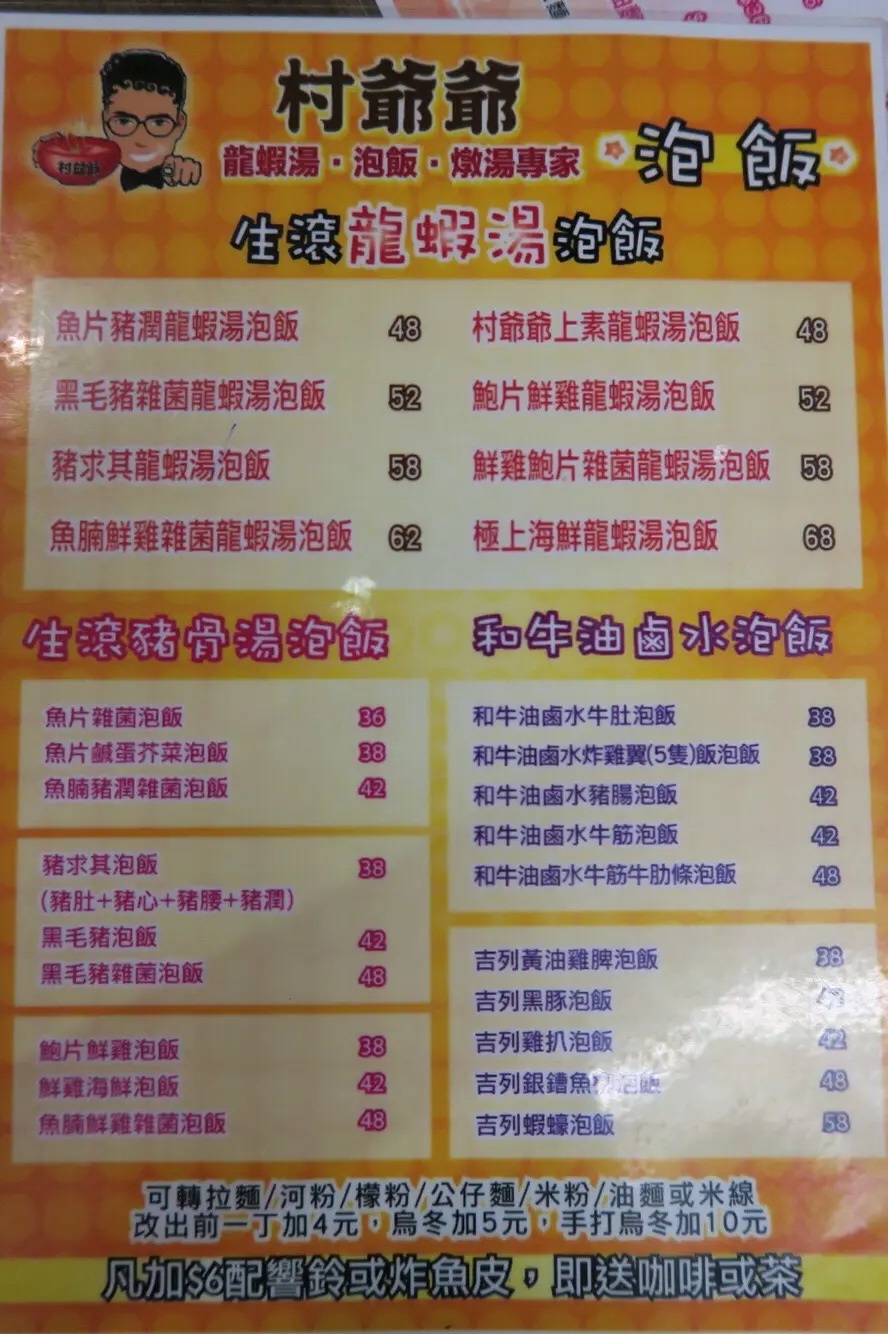 村爺爺
村爺爺
龍蝦湯・泡飯・燉湯專家
泡飯
生滾龍蝦湯泡飯
魚片豬潤龍蝦湯泡飯 48
村爺爺上素龍蝦湯泡飯 48
黑毛豬雜菌龍蝦湯泡飯 52
鮑片鮮雞龍蝦湯泡飯 52
豬求其龍蝦湯泡飯 58
鮮雞鮑片雜菌龍蝦湯泡飯 58
魚腩鮮雞雜菌龍蝦湯泡飯 62
極上海鮮龍蝦湯泡飯 68
生滾豬骨湯泡飯
魚片雜菌泡飯 36
魚片鹹蛋芥菜泡飯 38
魚腩豬潤雜菌泡飯 42
豬求其泡飯 38
(豬肚+豬心+豬腰+豬潤)
黑毛豬泡飯 42
黑毛豬雜菌泡飯 48
鮑片鮮雞泡飯 38
鮮雞海鮮泡飯 42
魚腩鮮雞雜菌泡飯 48
和牛油鹵水泡飯
和牛油鹵水牛肚泡飯 38
和牛油鹵水炸雞翼(5隻)飯泡飯 38
和牛油鹵水豬腸泡飯 42
和牛油鹵水牛筋泡飯 42
和牛油鹵水牛筋牛肋條泡飯 48
吉列黃油雞脾泡飯 38
吉列黑豚泡飯
吉列雞扒泡飯 42
吉列銀鱈魚泡飯 48
吉列蝦蠔泡飯 58
可轉拉麵/河粉/檬粉/公仔麵/米粉/油麵或米線
改出前一丁加4元，烏冬加5元，手打烏冬加10元
凡加$6配響鈴或炸魚皮，即送咖啡或茶